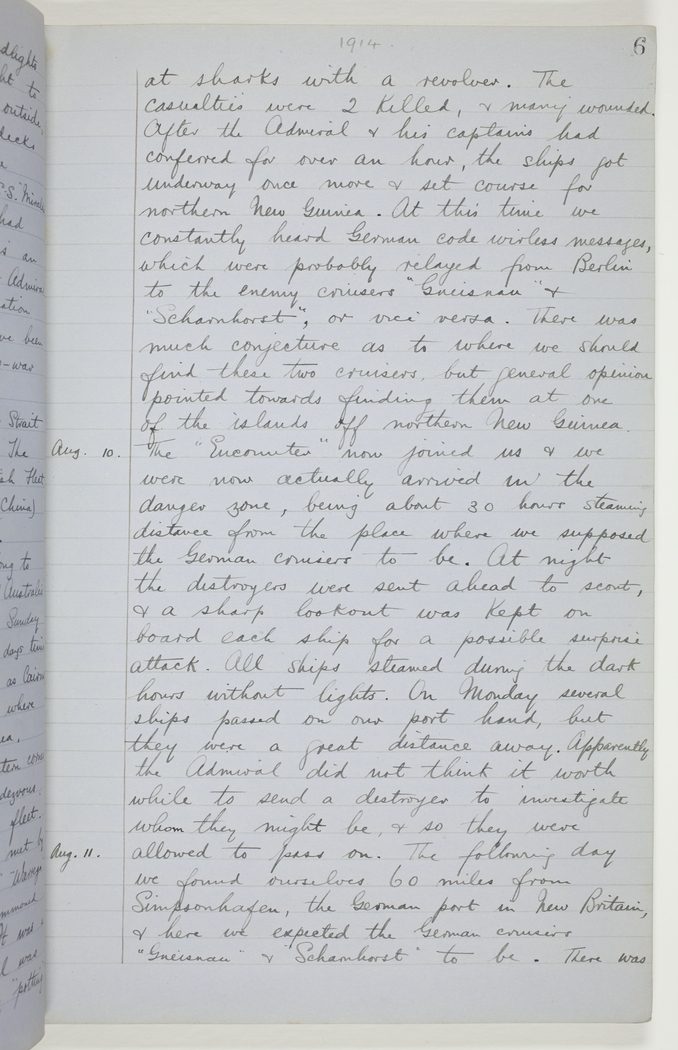 1914.
6
at sharks with a revolver. The
casualties were 2 Killed, & many wounded.
After the Admiral & his captains had
conferred for over an hour, the ships got
underway once more & set course for
northern New Guinea. At this time we
constantly heard German code wirless messages,
which were probably relayed from Berlin
to the enemy cruisers "Gneisnau" &
"Scharnhorst", or vici versa. There was
much conjecture as to where we should
find these two cruisers, but general opinion
pointed towards finding them at one
of the islands off northern New Guinea.
Aug. 10. The "Encounter" now joined us & we
were now actually arrived in the
danger zone, being about 30 hours steaming
distance from the place where we supposed
the German cruisers to be. At night
the distroyers were sent ahead to scout,
& a sharp lookout was Kept on
board each ship for a possible surprise
attack. All ships steamed during the dark
hours without lights. On Monday several
ships passed on our port hand, but
they were a great distance away. Apparently
the Admiral did not think it worth
while to send a destroyer to investigate
whom they might be, & so they were
Aug. 11. allowed to pass on. The following day
we found ourselves 60 miles from
Simpsonhafen, the German port in New Britain,
& here we expected the German cruisers
"Gneisnau" & "Scharnhorst" to be. There was